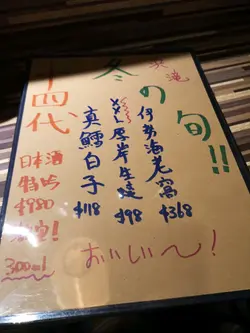 冬の旬!!
伊勢海老窩
$368
XXL厚岸生蠔
$98
真鱈白子
$118
十四代
日本酒
特吟
$980
300ml
おいしい〜!